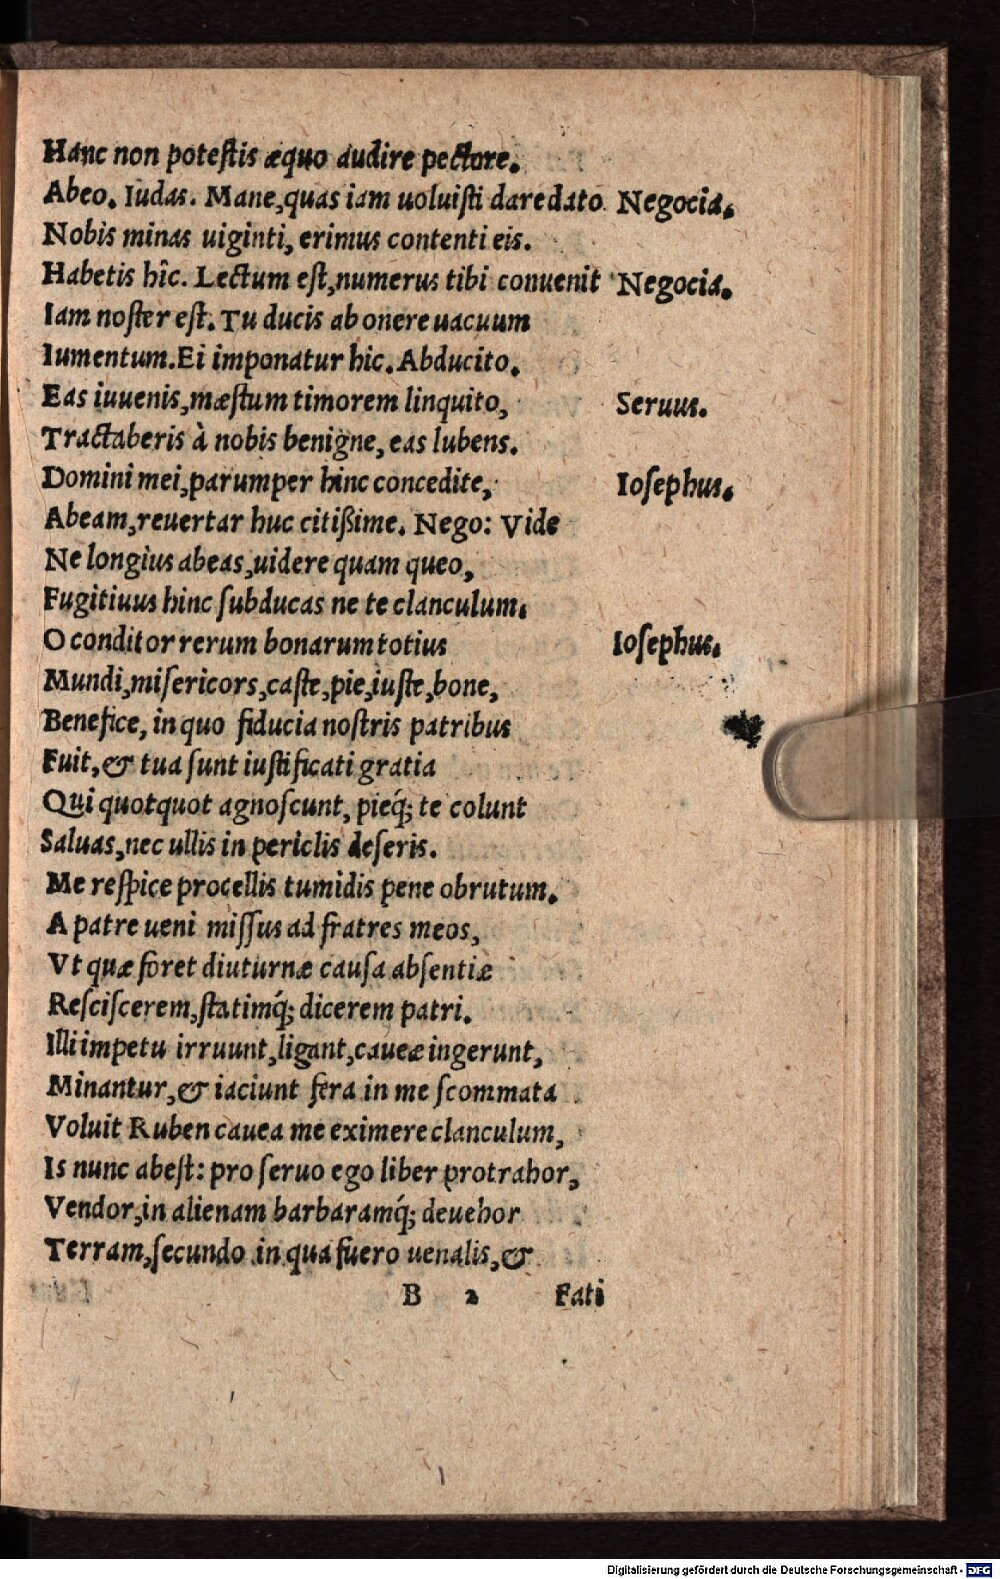 Hanc non poteſtis æquo audire pectore.
Abeo. Iudas. Mane, quas iam uoluiſti dare dato Negocia.
Nobis minas uiginti, erimus contenti eis.
Habetis hîc. Lectum eſt, numerus tibi conuenit Negocia.
Iam noſter eſt. Tu ducis ab onere uacuum
Iumentum. Ei imponatur hic. Abducito.
Eas iuuenis, mæſtum timorem linquito, Seruus.
Tractaberis à nobis benigne, eas lubens.
Domini mei, parumper hinc concedite, Ioſephus.
Abeam, reuertar huc citißime. Nego: Vide
Ne longius abeas, uidere quam queo,
Fugitiuus hinc ſubducas ne te clanculum.
O conditor rerum bonarum totius Ioſephus.
Mundi, miſericors, caſte, pie, iuſte, bone,
Benefice, in quo fiducia noſtris patribus
Fuit, & tua ſunt iuſtificati gratia
Qui quotquot agnoſcunt, pieq́; te colunt
Saluas, nec ullis in periclis deſeris.
Me reſpice procellis tumidis pene obrutum.
A patre ueni miſſus ad fratres meos,
Vt quæ foret diuturnæ cauſa abſentiæ
Reſciſcerem, ſtatimq́; dicerem patri.
Illi impetu irruunt, ligant, caueæ ingerunt,
Minantur, & iaciunt fera in me ſcommata
Voluit Ruben cauea me eximere clanculum,
Is nunc abeſt: pro ſeruo ego liber protrahor,
Vendor, in alienam barbaramq́; deuehor
Terram, ſecundo in qua fuero uenalis, &
B 2 Fati
Digitalisierung gefördert durch die Deutsche Forschungsgemeinschaft - DFG